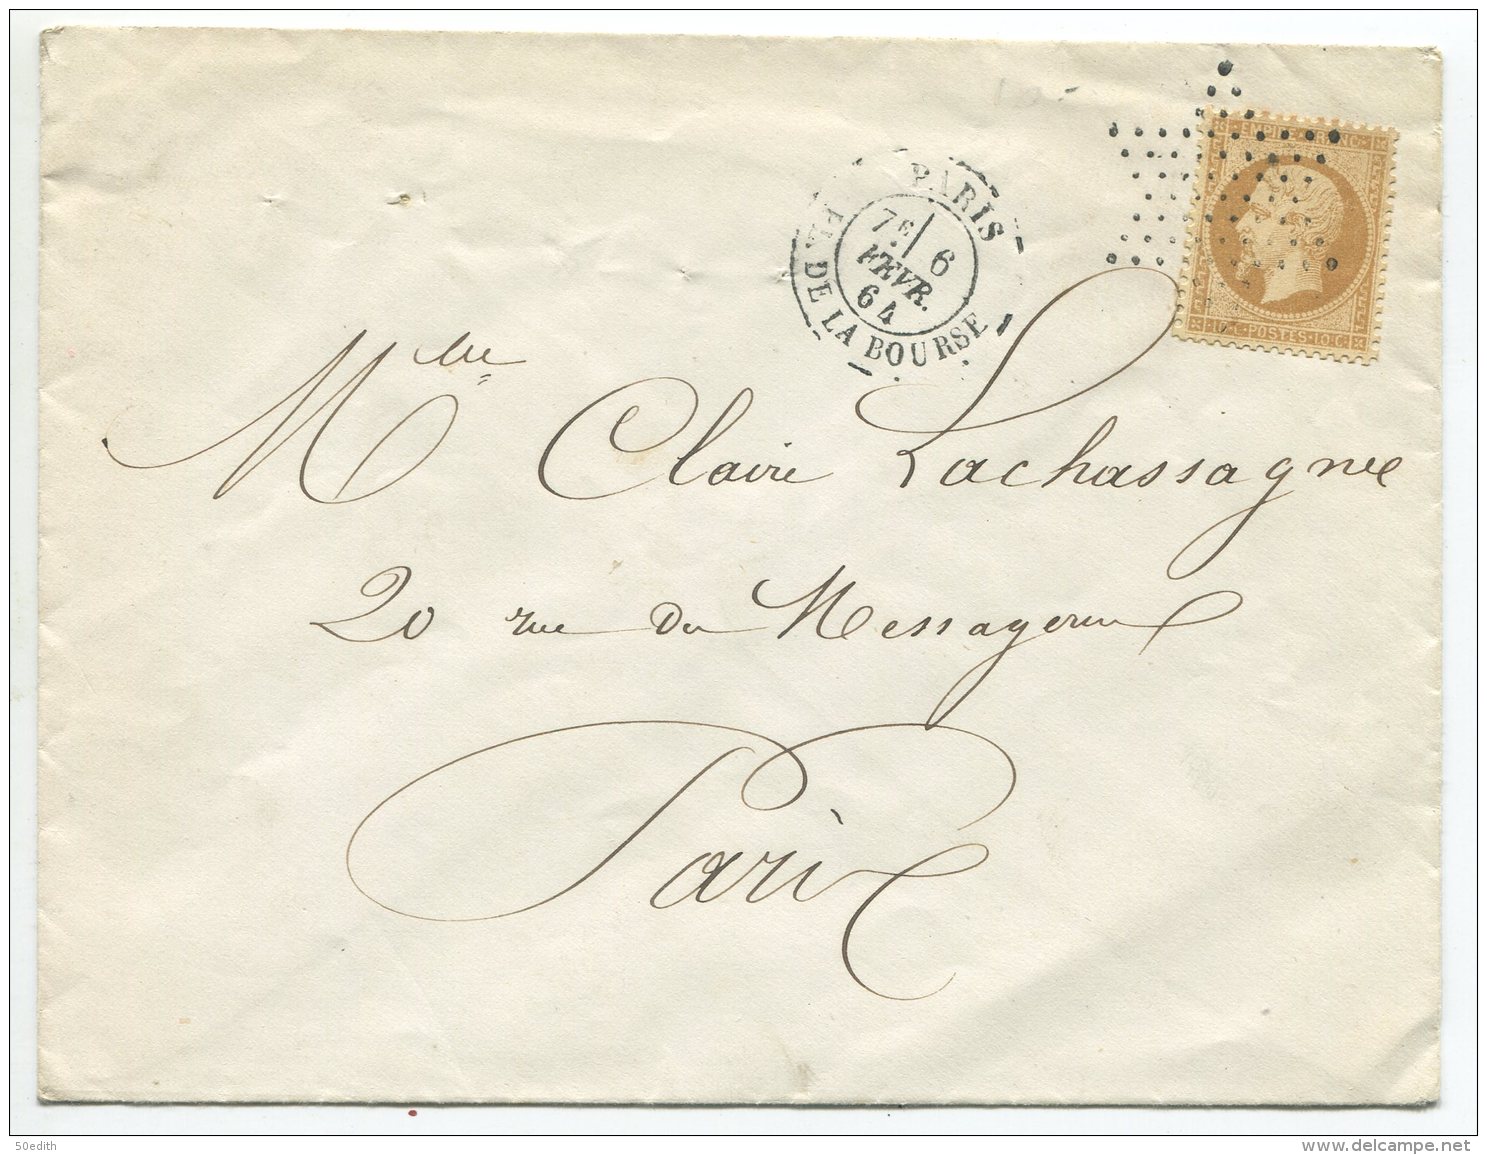 EMPIRE FRANC
POSTES 10 C.
PARIS
7E 6
FEVR.
64
PL. DE LA BOURSE
Mlle Claire Lachassagne
20 rue des Messageries
Paris
50edith
delcampe.net